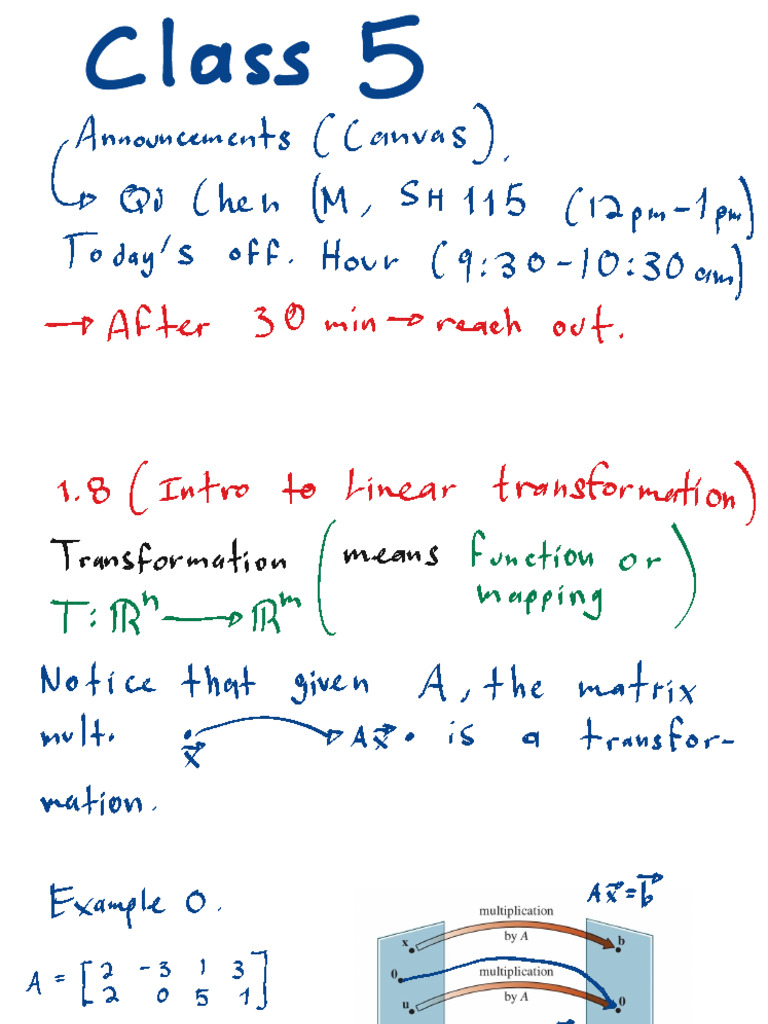 Class 5
Announcements (Canvas).
→ Qi Chen (M, SH 115 (12pm-1pm)
Today's off. Hour (9:30-10:30am)
→ After 30 min → reach out.
1.8 (Intro to Linear transformation)
Transformation (means function or mapping)
T: ℝⁿ → ℝᵐ
Notice that given A, the matrix
mult. x⃗ → Ax⃗ is a transfor-
mation.
Example 0.
Ax⃗ = b⃗
A = [2 -3 1 3
2 0 5 1]
multiplication
by A
x b
0 multiplication
by A
u 0